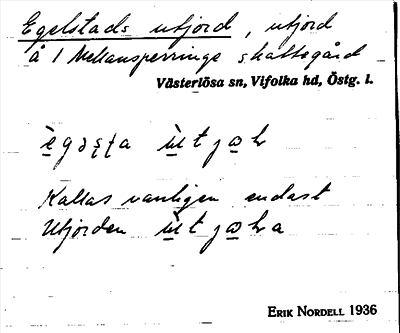 Egelstads utjord, utjord
å 1 Mellansperringe skattegård
Västerlösa sn, Vifolka hd, Östg. l.
Kallas vanligen endast
Utjorden
ERIK NORDELL 1936